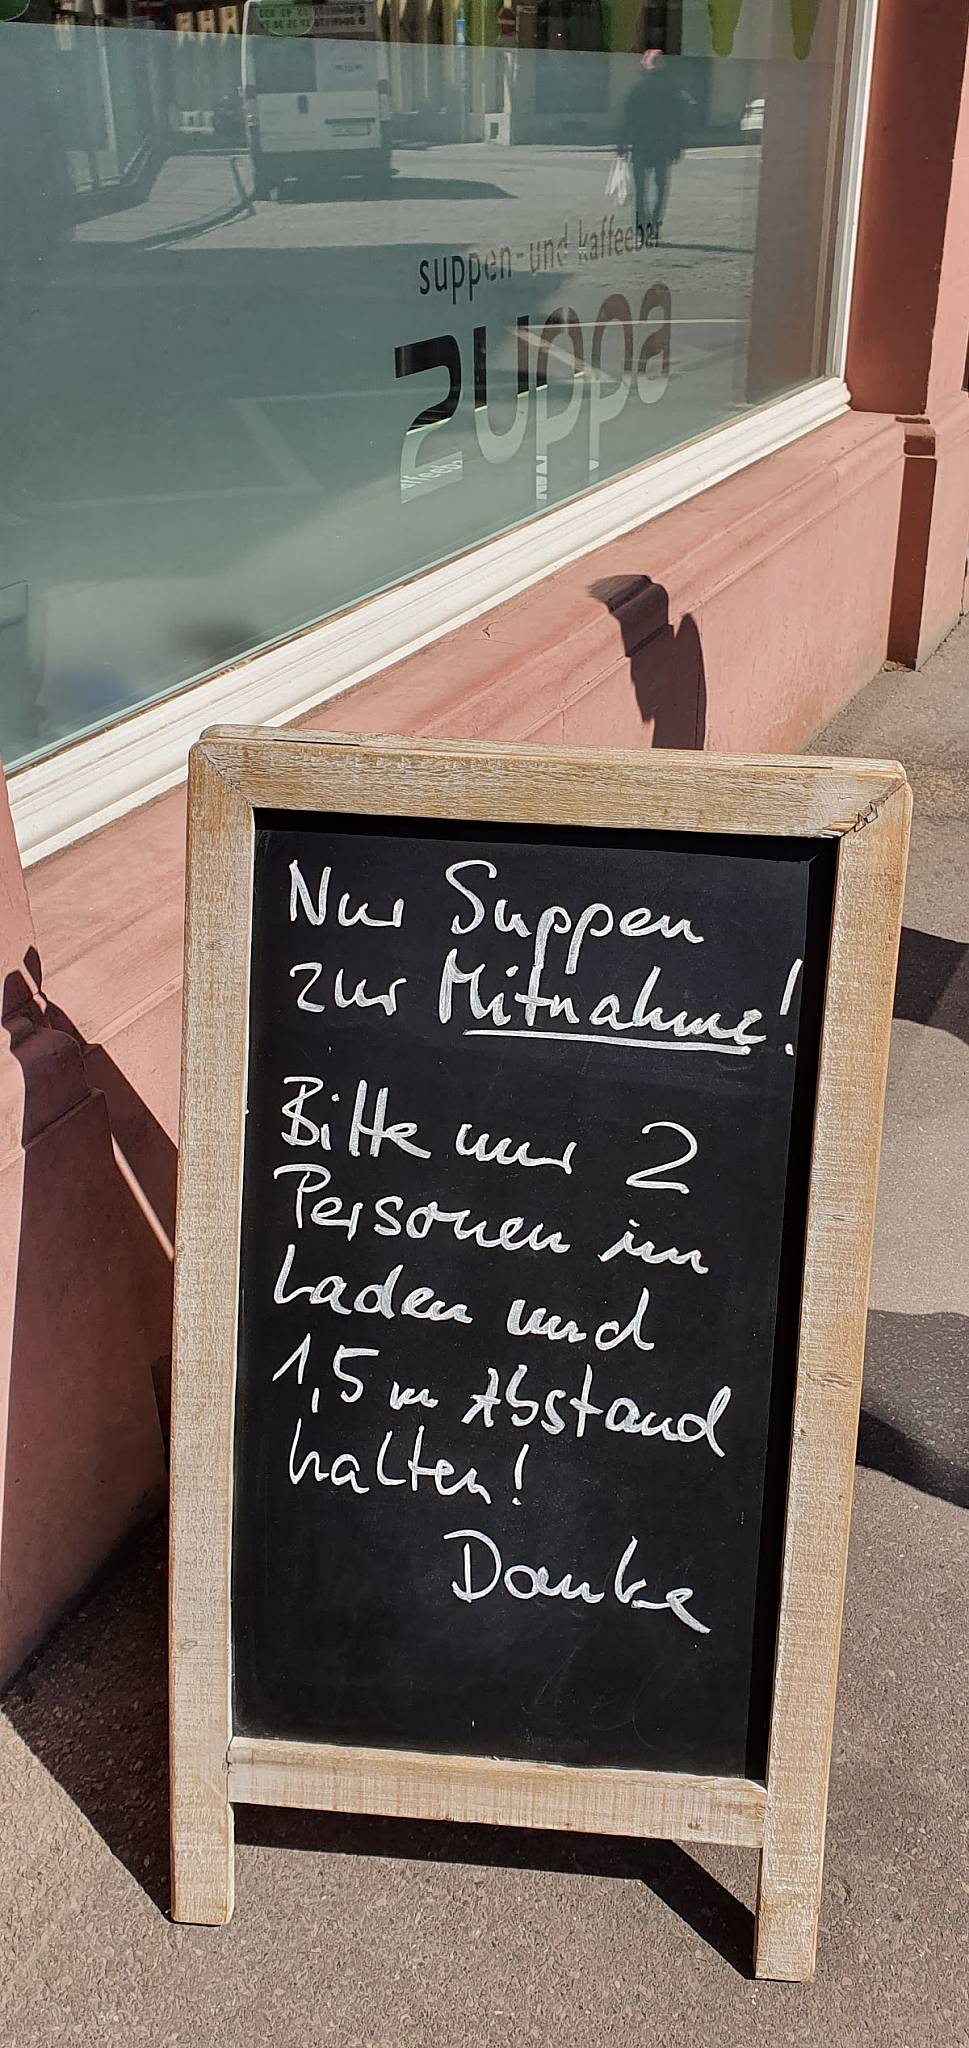 suppen-und kaffeebar
zuppa
Nur Suppen
zur Mitnahme!
Bitte nur 2
Personen im
Laden und
1,5 m Abstand
halten!
Danke